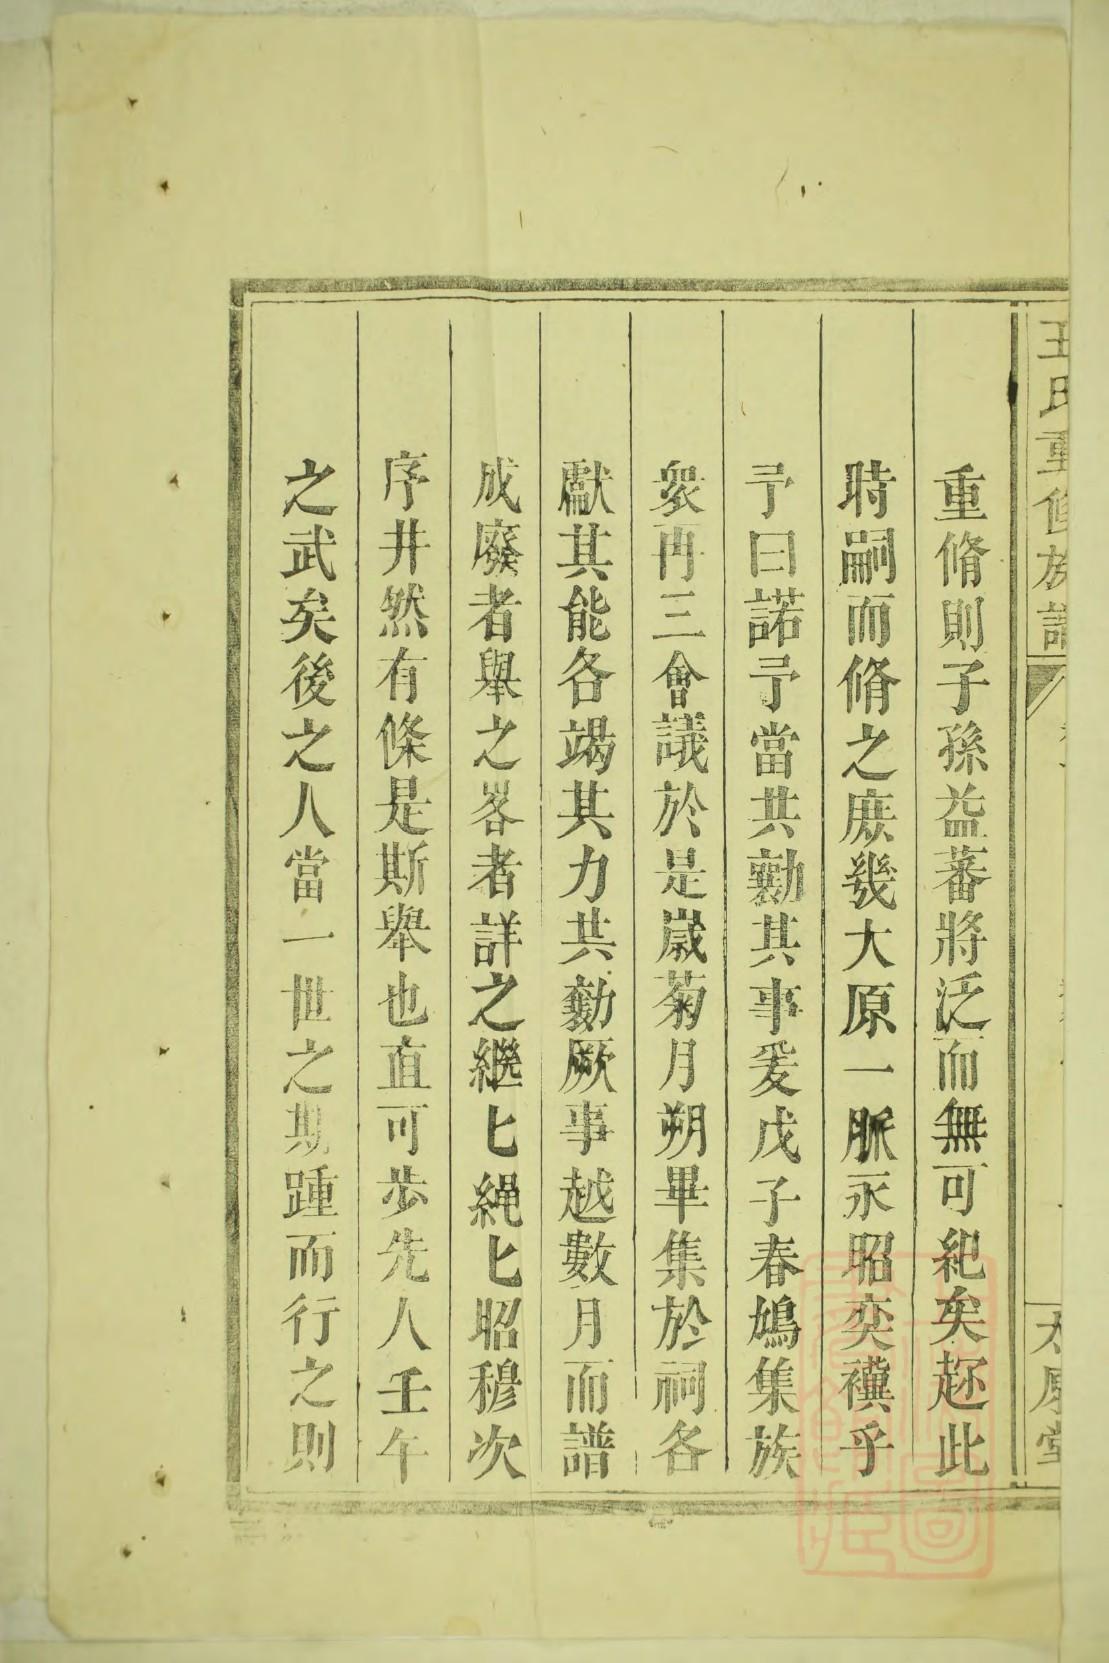 王氏重修族譜
太原堂
重脩則子孫益蕃將泛而無可紀矣趂此
時嗣而脩之庶幾大原一脈永昭奕禩乎
予曰諾予當共勷其事爰戊子春鳩集族
衆再三會議於是嵗菊月朔畢集於祠各
獻其能各竭其力共勷厥事越數月而譜
成廢者舉之畧者詳之繼匕繩匕昭穆次
序井然有條是斯舉也直可步先人壬午
之武矣後之人當一世之期踵而行之則